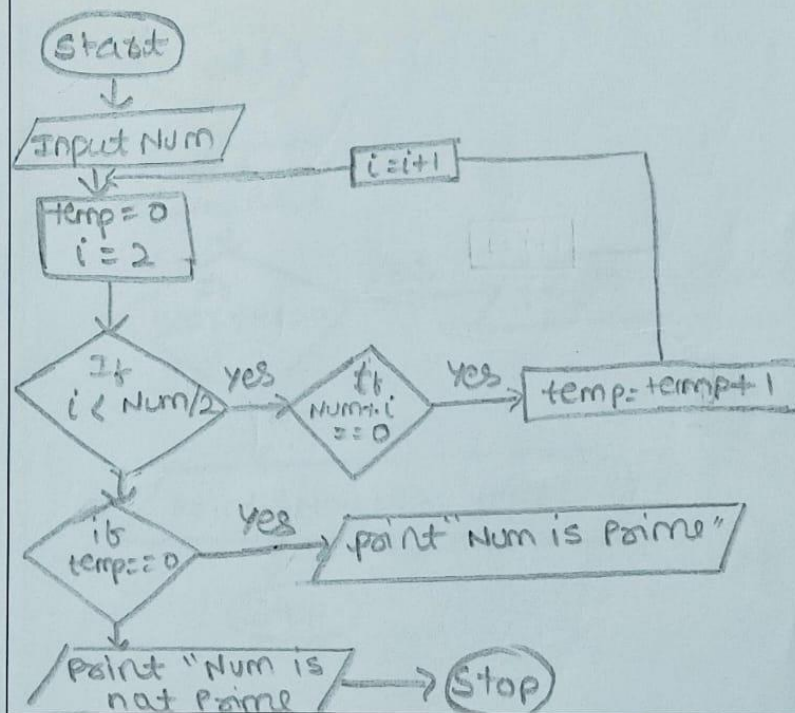 Start
Input Num
i=i+1
temp=0
i=2
If
i < Num/2
yes
If
Num%i
==0
yes
temp=temp+1
if
temp==0
yes
print "Num is Prime"
print "Num is
not Prime
Stop